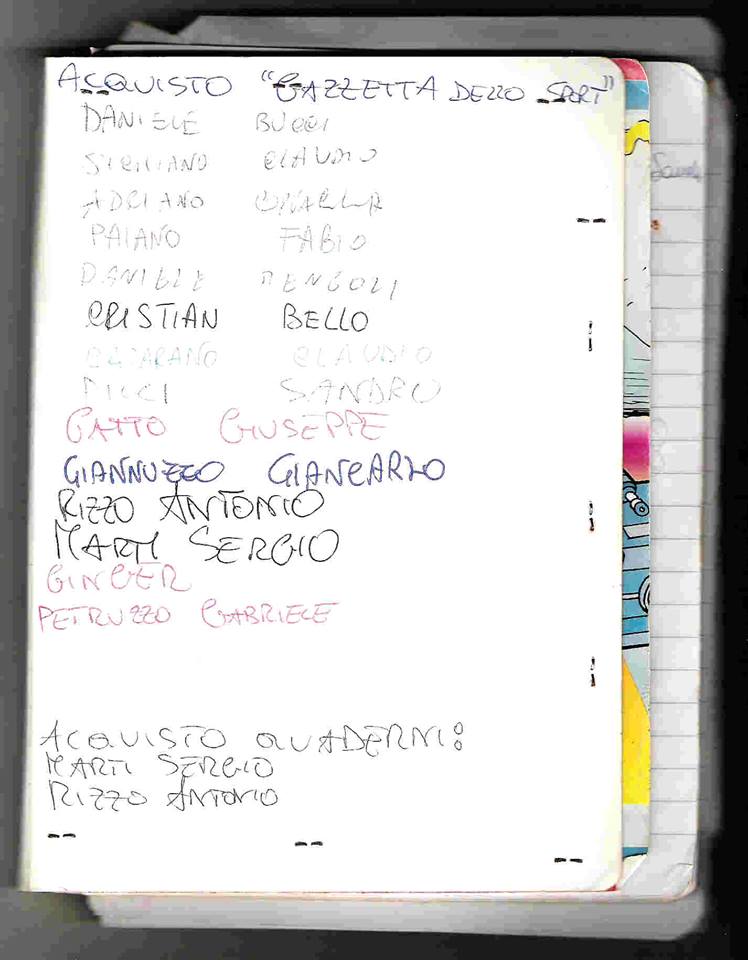 ACQUISTO "GAZZETTA DELLO SPORT"
DANIELE BUCCI
SICILIANO CLAUDIO
ADRIANO
PAIANO FABIO
DANIELE MENGOLI
CRISTIAN BELLO
CLAUDIO
PICCI SANDRO
GATTO GIUSEPPE
GIANNUZZO GIANCARLO
RIZZO ANTONIO
MARTI SERGIO
GINGER
PETRUZZO GABRIELE
ACQUISTO QUADERNI:
MARTI SERGIO
RIZZO ANTONIO